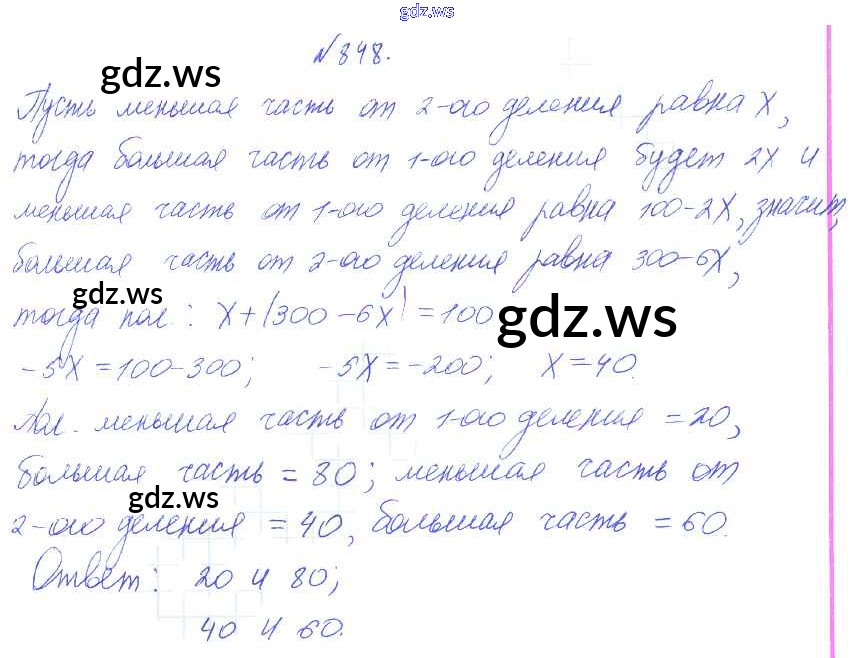 gdz.ws
№848.
gdz.ws
Пусть меньшая часть от 2-ого деления равна x,
тогда большая часть от 1-ого деления будет 2x и
меньшая часть от 1-ого деления равна 100-2x, значит,
большая часть от 2-ого деления равна 300-6x,
gdz.ws
тогда пол.: x+(300-6x)=100
gdz.ws
-5x=100-300; -5x=-200; x=40.
Пол. меньшая часть от 1-ого деления =20,
большая часть =80; меньшая часть от
gdz.ws
2-ого деления =40, большая часть =60.
Ответ: 20 и 80;
40 и 60.